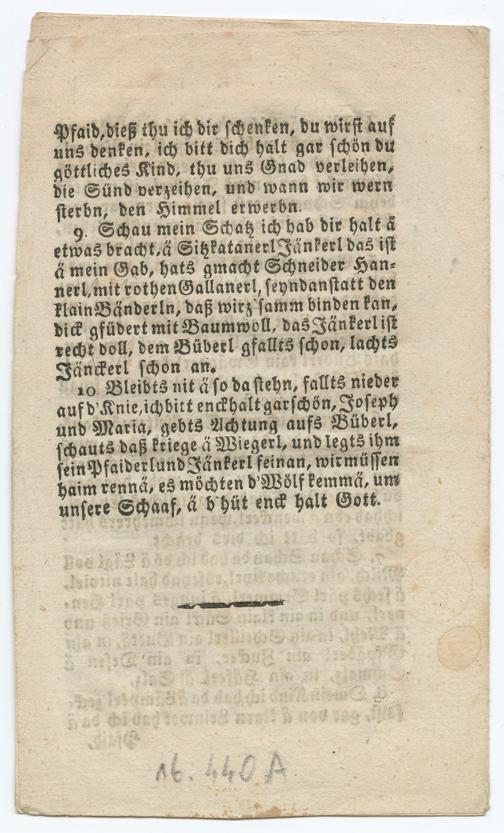 Pfaid, dieß thu ich dir schenken, du wirst auf
uns denken, ich bitt dich halt gar schön du
göttliches Kind, thu uns Gnad verleihen,
die Sünd verzeihen, und wann wir wern
sterbn, den Himmel erwerbn.
9. Schau mein Schatz ich hab dir halt ä
etwas bracht, ä Sitzkatanerl Jänkerl das ist
ä mein Gab, hats gmacht Schneider Han=
nerl, mit rothen Gallanerl, seyndanstatt den
klain Bänderln, daß wirz'samm binden kan,
dick gfüdert mit Baumwoll, das Jänkerl ist
recht doll, dem Büberl gfallts schon, lachts
Jänckerl schon an.
10 Bleibts nit ä so da stehn, fallts nieder
auf d'Knie, ich bitt enck halt gar schön, Joseph
und Maria, gebts Achtung aufs Büberl,
schauts daß kriege ä Wiegerl, und legts ihm
sein Pfaiderl und Jänkerl feinan, wir müssen
haim rennä, es möchten d'Wölf kemmä, um
unsere Schaaf, ä b'hüt enck halt Gott.
16.440 A